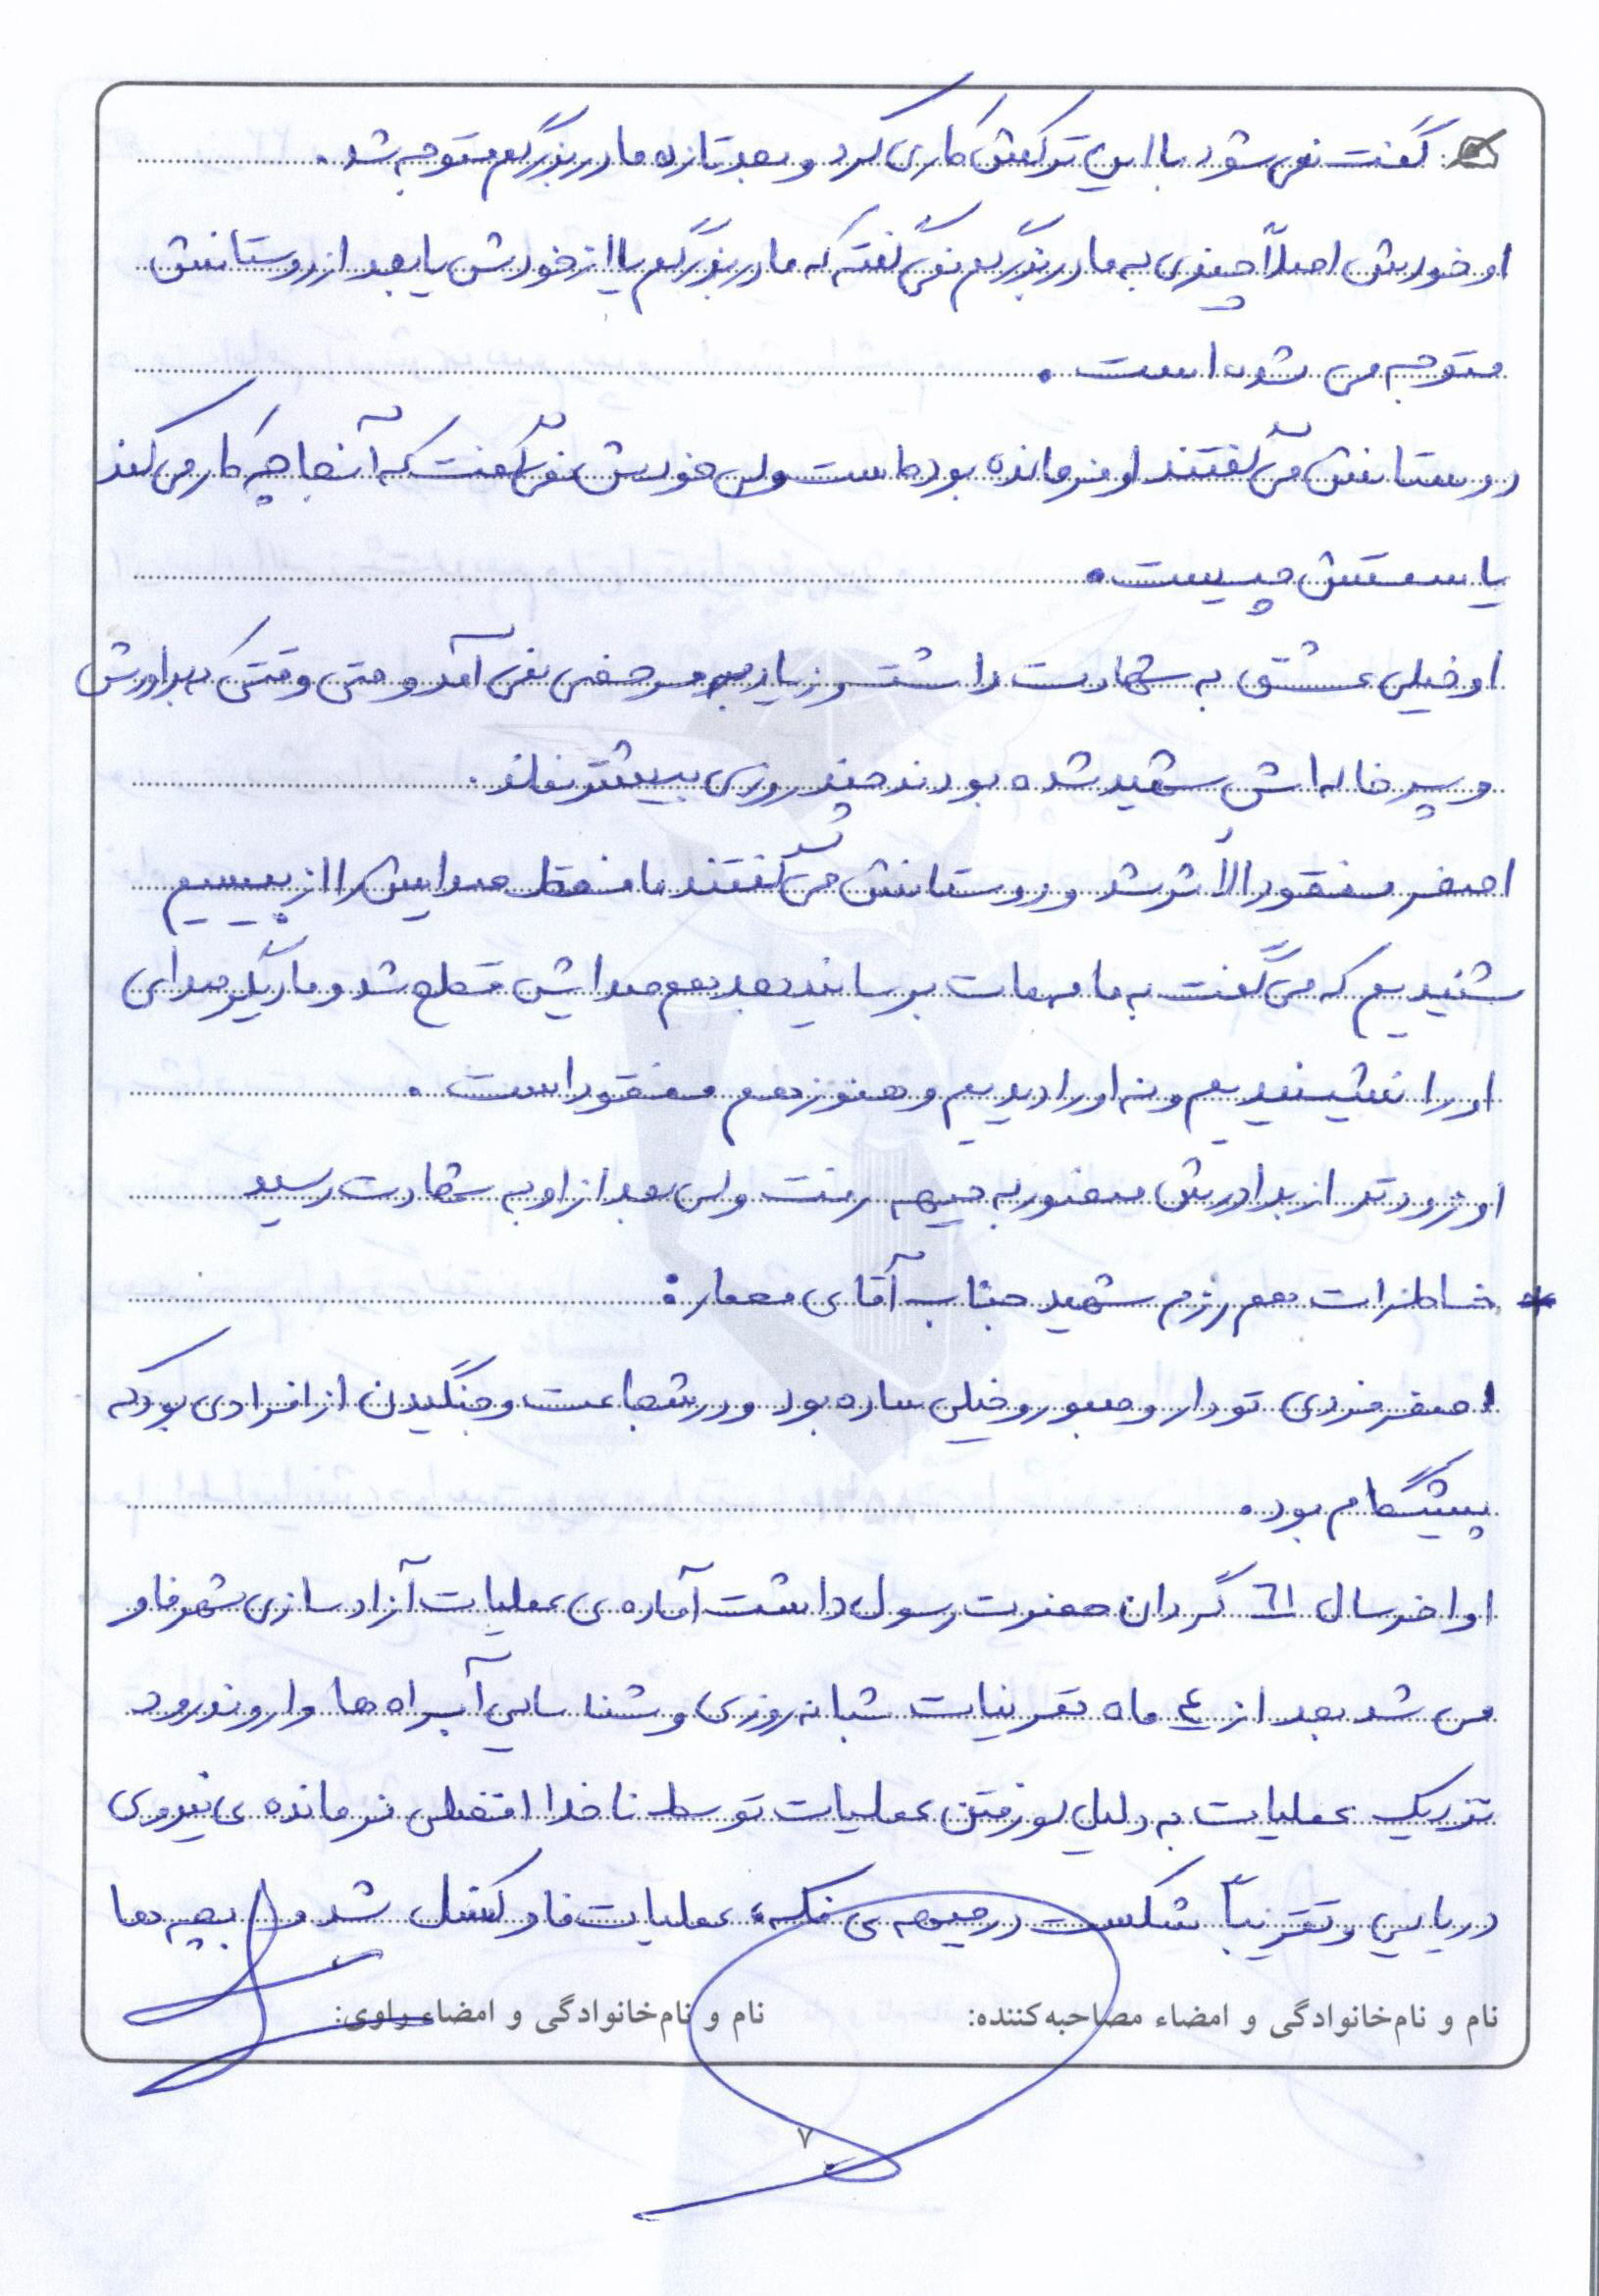 گفت نمی شود با این ترکش کاری کرد و بعد تازه مادربزرگم متوجه شد.
او خودش اصلاً چیزی به مادربزرگم نمی گفته که مادربزرگم یا از خودش یا بعد از دوستانش
متوجه می شده است.
دوستانش می گفتند او فرمانده بوده است ولی خودش نمی گفت که آنجا چه کار می کند
یا سمتش چیست.
او خیلی عشق به شهادت داشت و زیاد به مرخصی نمی آمد و حتی وقتی که برادرش
و پسرخاله اش شهید شده بودند چند روزی بیشتر نماند.
اصغر مفقودالأثر شد و دوستانش می گفتند ما فقط صدایش را از بیسیم
شنیدیم که می گفت به ما مهمات برسانید بعد هم صدایش قطع شد و ما دیگر صدای
او را نشنیدیم و نه او را دیدیم و هنوز هم مفقود است.
او زودتر از برادرش صفدر به جبهه رفت ولی بعد از او به شهادت رسید
* خاطرات هم رزم شهید جناب آقای معمار:
اصغر فردی تودار و صبور و خیلی ساده بود و در شجاعت و جنگیدن از افرادی بود که
پیشگام بود.
اواخر سال ٦١ گردان حضرت رسول داشت آماده ی عملیات آزادسازی شهر فاو
می شد بعد از ٤ ماه تمرینات شبانه روزی و شناسایی آبراه ها و اروندرود
نزدیک عملیات به دلیل لو رفتن عملیات توسط ناخدا افضلی فرمانده ی نیروی
دریایی و تقریباً شکست در جبهه ی فکه، عملیات فاو کنسل شد و بچه ها
نام و نام‌خانوادگی و امضاء مصاحبه‌کننده: نام و نام‌خانوادگی و امضاء راوی:
۷